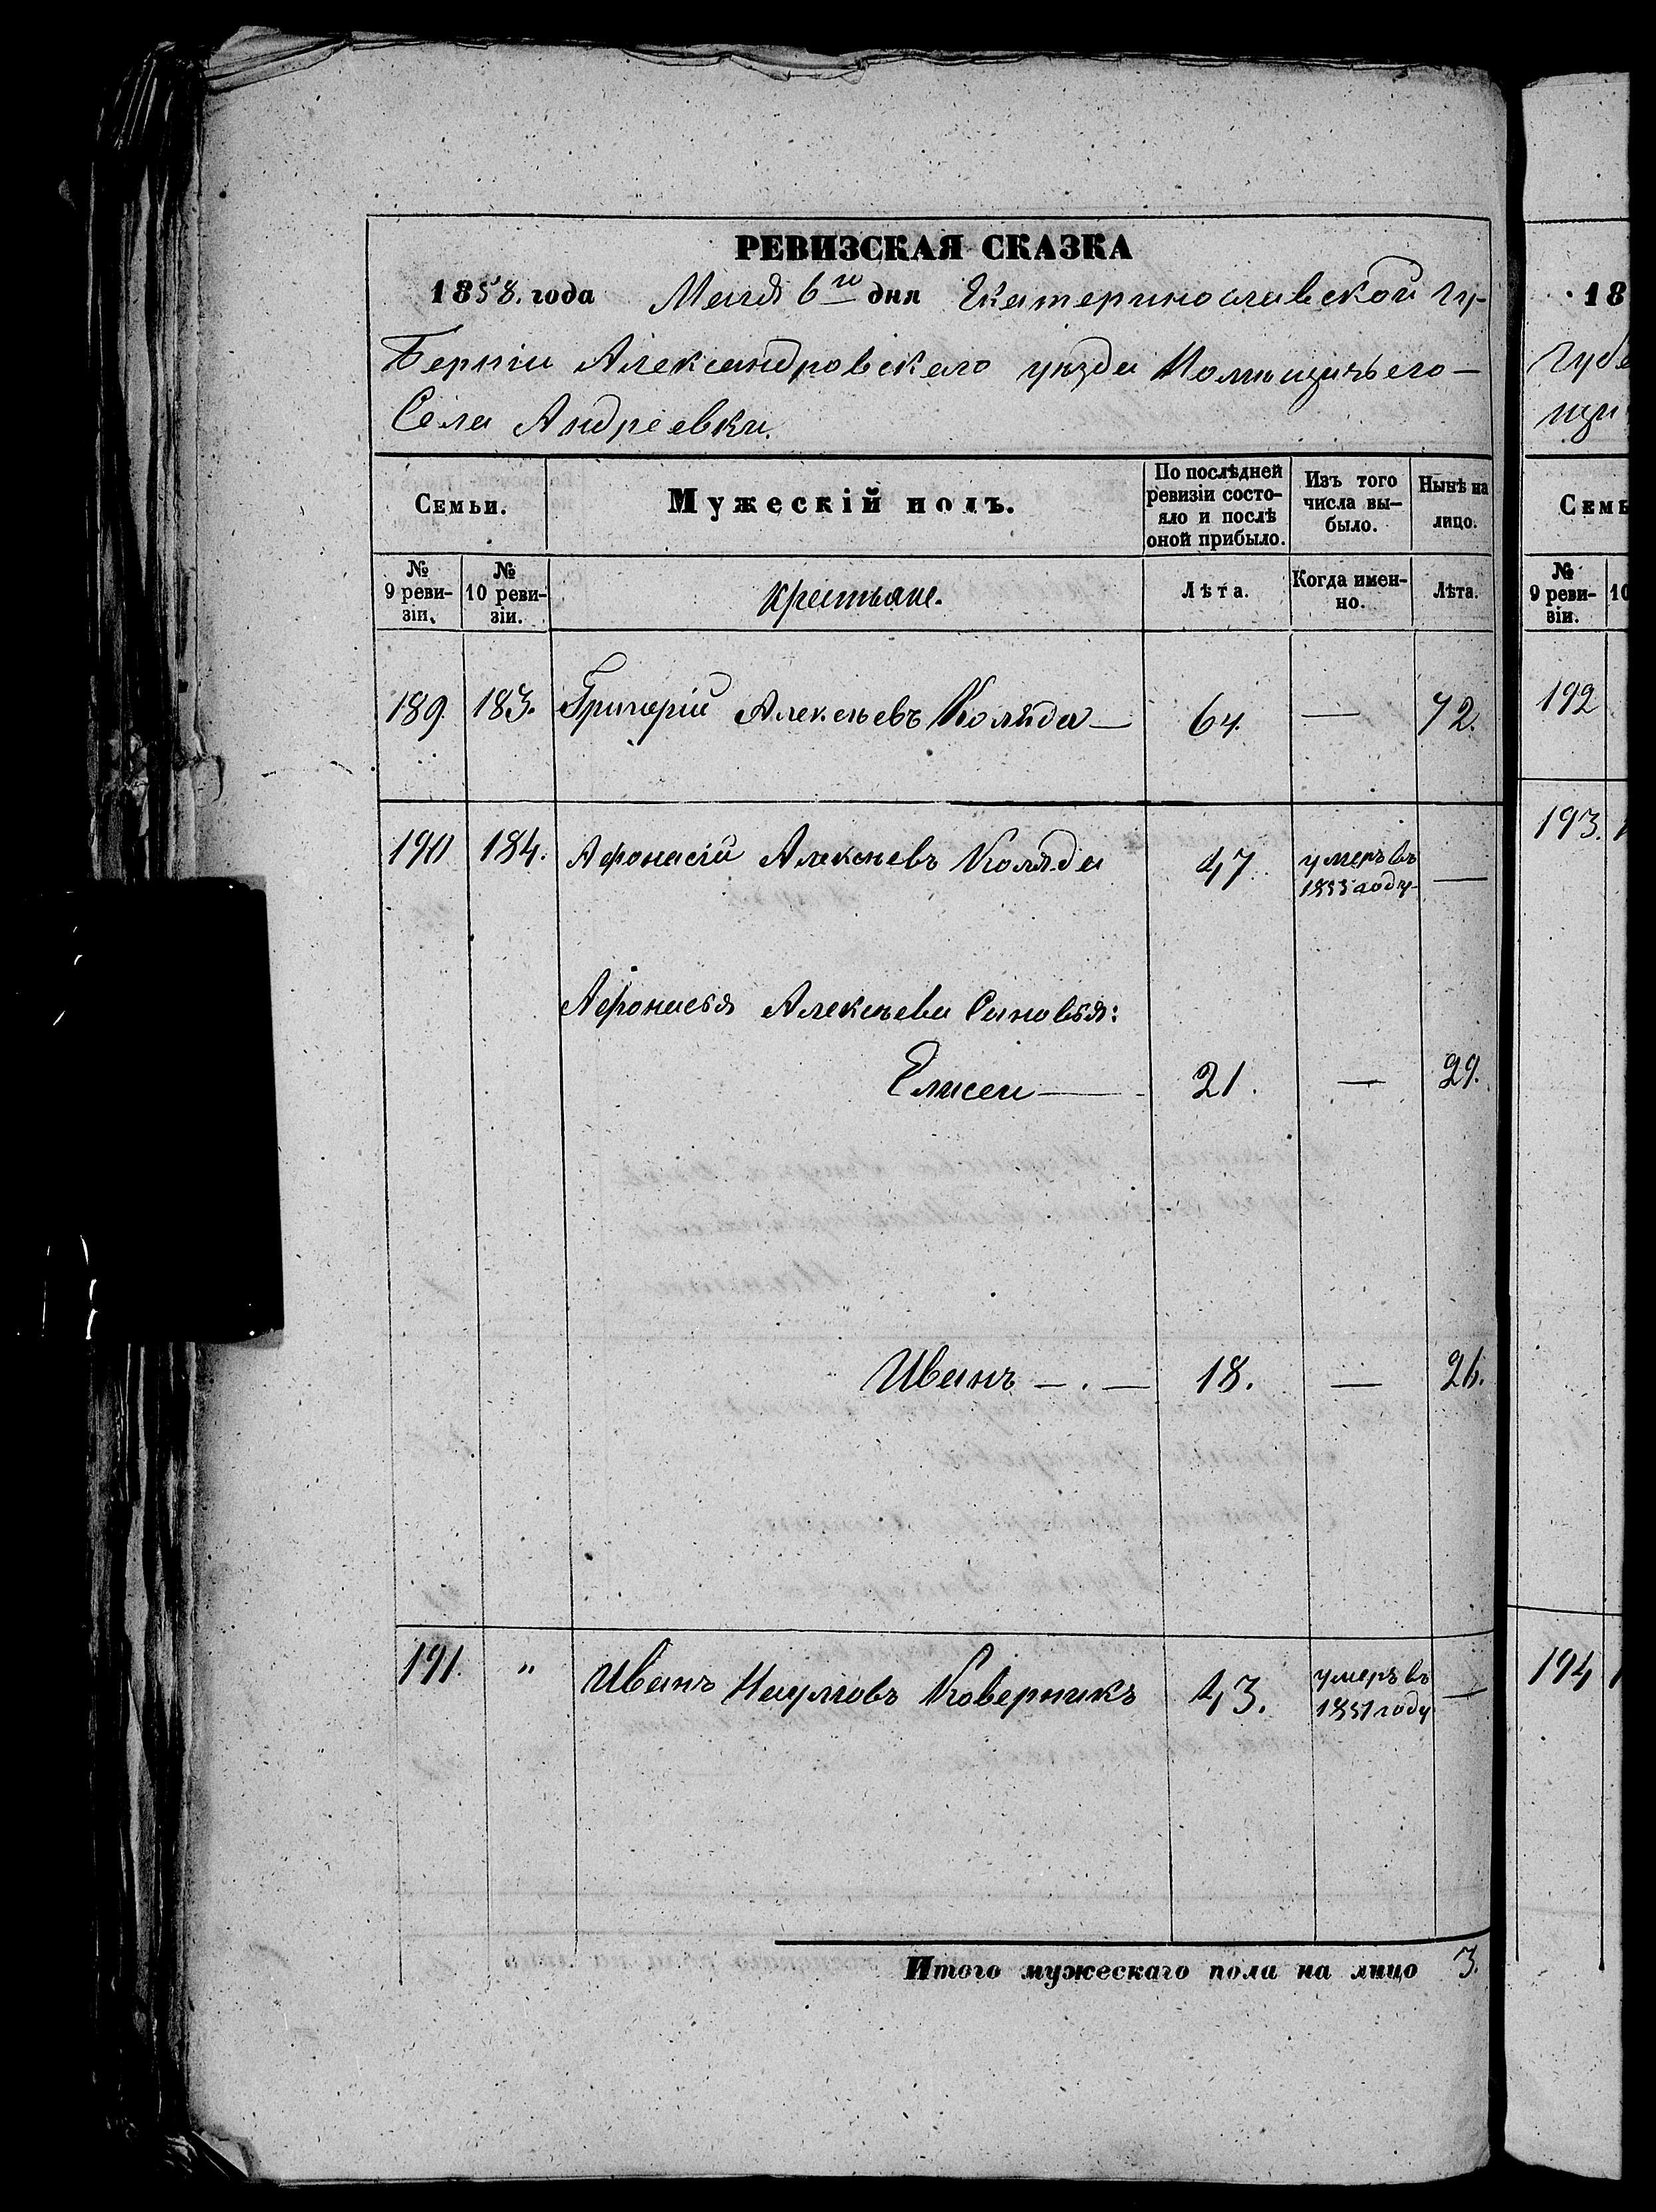 РЕВИЗСКАЯ СКАЗКА
1858. года Мая 6го дня Екатеринославской гу-
берніи Александровского уезда Помѣщичьего
Села Андреевки.
Семьи. Мужескій полъ. По послѣдней ревизіи состо-яло и послѣ оной прибыло. Изъ того числа вы-было. Нынѣ на лицо.
№ 9 реви-зіи. № 10 реви-зіи. Крестьяне. Лѣта. Когда имен-но. Лѣта.
189. 183. Григорій Алексѣевъ Коляда — 64. — 72.
190 184. Афонасій Алексѣевъ Коляда 47. умеръ въ 1855 году —
Афонасья Алексѣева Сыновья:
Елисей — 21. — 29.
Иванъ — . — 18. — 26.
191. " Иванъ Наумовъ Коверникъ 43. умеръ въ 1851 году —
Итого мужескаго пола на лицо 3.
18
Губе
щи
Семь
№ 9 реви-зіи. 10
192
193.
194